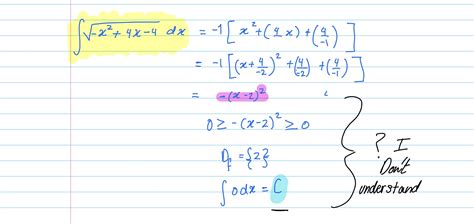 ∫ √-x² + 4x - 4 dx = -1 [ x² + (4/-1 x) + (4/-1) ]
= -1 [ (x + 4/-2)² + (4/-2) + (4/-1) ]
= -(x-2)²
0 ≥ -(x-2)² ≥ 0
D_f = {2}
∫ 0 dx = C
? I
Don't
understand